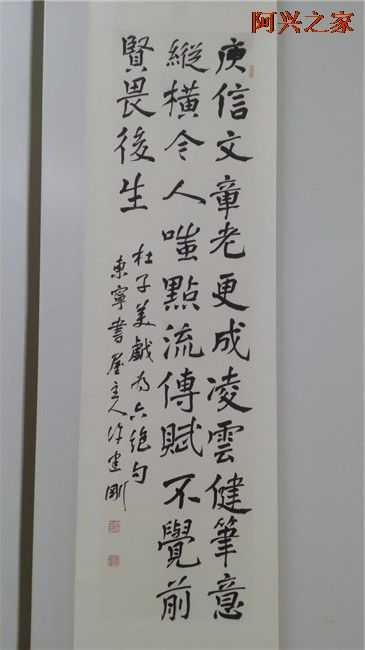 阿兴之家
庾信文章老更成凌雲健筆意
縱橫今人嗤點流傳賦不覺前
賢畏後生
杜子美戲为六絕句
東寧書屋主人许建剛